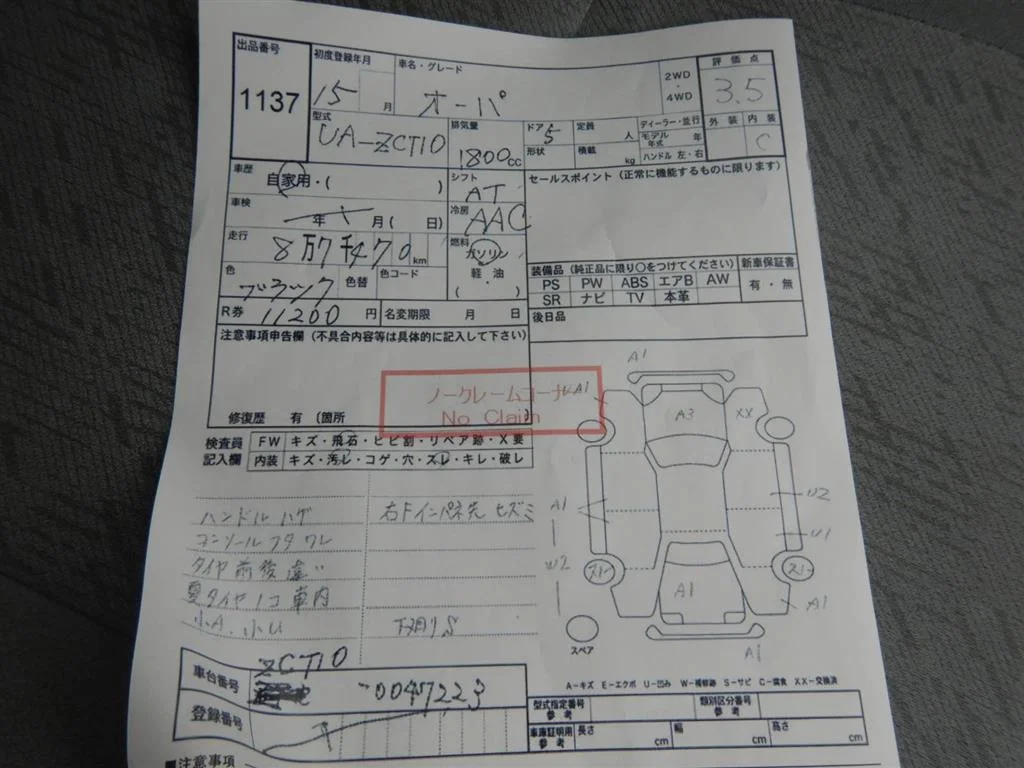 出品番号 初度登録年月 車名・グレード 2WD・4WD 評価点
1137 15 月 オーパ 3.5
型式 UA-ZCT10 排気量 1800cc ドア 5 形状 定員 人 積載 kg ディーラー・並行 モデル年式 年 ハンドル 左・右 外装 内装 C
車歴 自家用・( ) シフト AT セールスポイント (正常に機能するものに限ります)
車検 年 月( 日) 冷房 AAC
走行 8万7千470km 燃料 ガソリン 軽油 ( ・ )
色 ブラック 色替 色コード
装備品 (純正品に限り○をつけてください) 新車保証書
PS PW ABS エアB AW 有・無
SR ナビ TV 本革
R券 11200円 名変期限 月 日 後日品
注意事項申告欄 (不具合内容等は具体的に記入して下さい)
ノークレームコーナー
No Claim
修復歴 有 (箇所 )
検査員記入欄 FW キズ・飛石・ヒビ割・リペア跡・X要
内装 キズ・汚レ・コゲ・穴・スレ・キレ・破レ
ハンドルハゲ 右Fインパネ先 ヒズミ
コンソールフタワレ
タイヤ前後違い
夏タイヤ1コ車内
小A、小U 下廻りS
A1
A1
A3
XX
A1
U2
U1
W2
スト
スト
A1
A1
A1
スペア
A-キズ E-エクボ U-凹み W-補修跡 S-サビ C-腐食 XX-交換済
車台番号 ZCT10 -0047223
登録番号
型式指定番号 参考 類別区分番号 参考
車庫証明用 参考 長さ cm 幅 cm 高さ cm
■注意事項